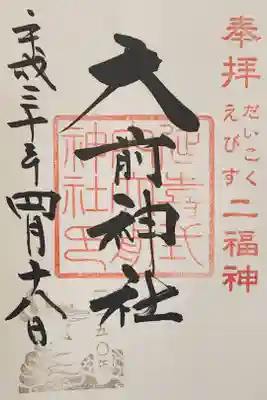 奉拝
だいこく
えびす
二福神
大前神社
延喜式
神社印
平成三十年四月十八日